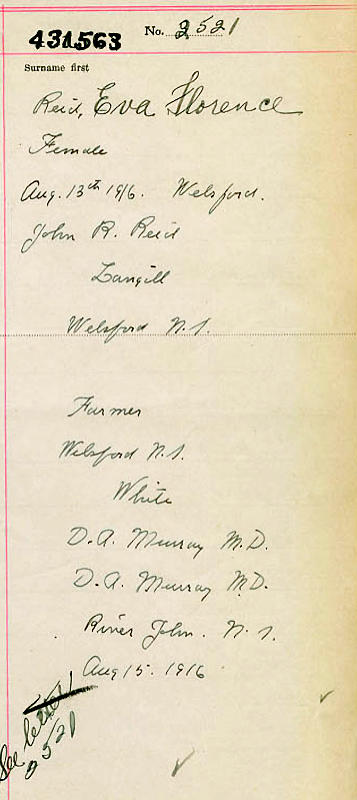 431563 No. 2521
Surname first
Reid, Eva Florence
Female
Aug. 13th 1916. Welsford.
John R. Reid
Langill
Welsford N.S.
Farmer
Welsford N.S.
White
D.A. Murray M.D.
D.A. Murray M.D.
River John. N.S.
Aug 15. 1916
See letter
2521